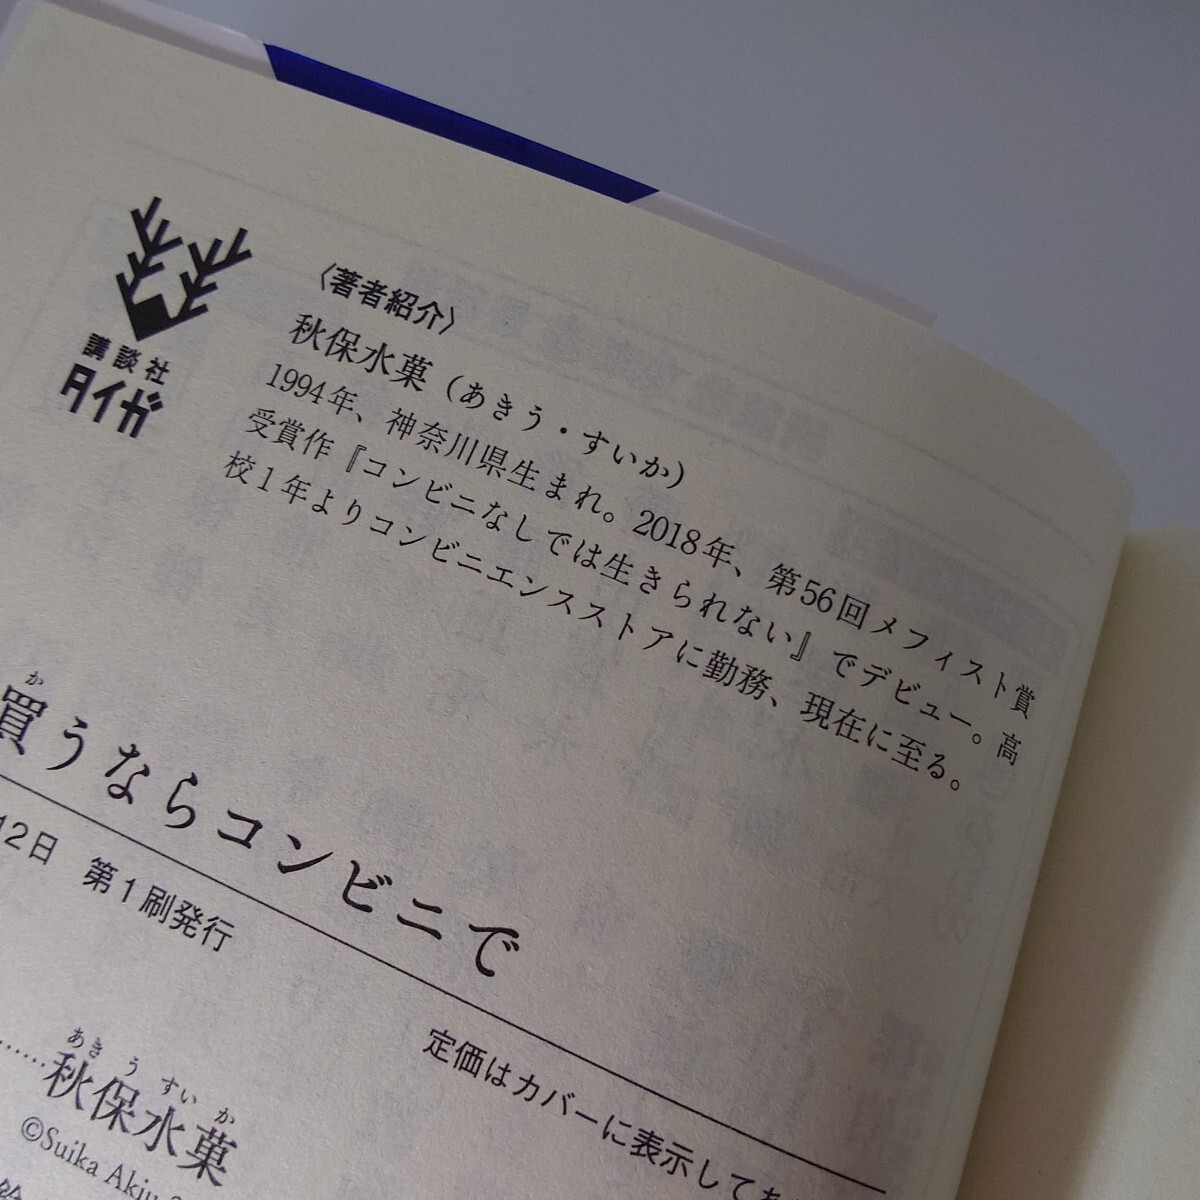 講談社
タイガ
〈著者紹介〉
秋保水菓（あきう・すいか）
1994年、神奈川県生まれ。2018年、第56回メフィスト賞
受賞作『コンビニなしでは生きられない』でデビュー。高
校1年よりコンビニエンスストアに勤務、現在に至る。
か
買うならコンビニで
12日 第1刷発行
定価はカバーに表示してあ
あきう すいか
……秋保水菓
©Suika Akiu